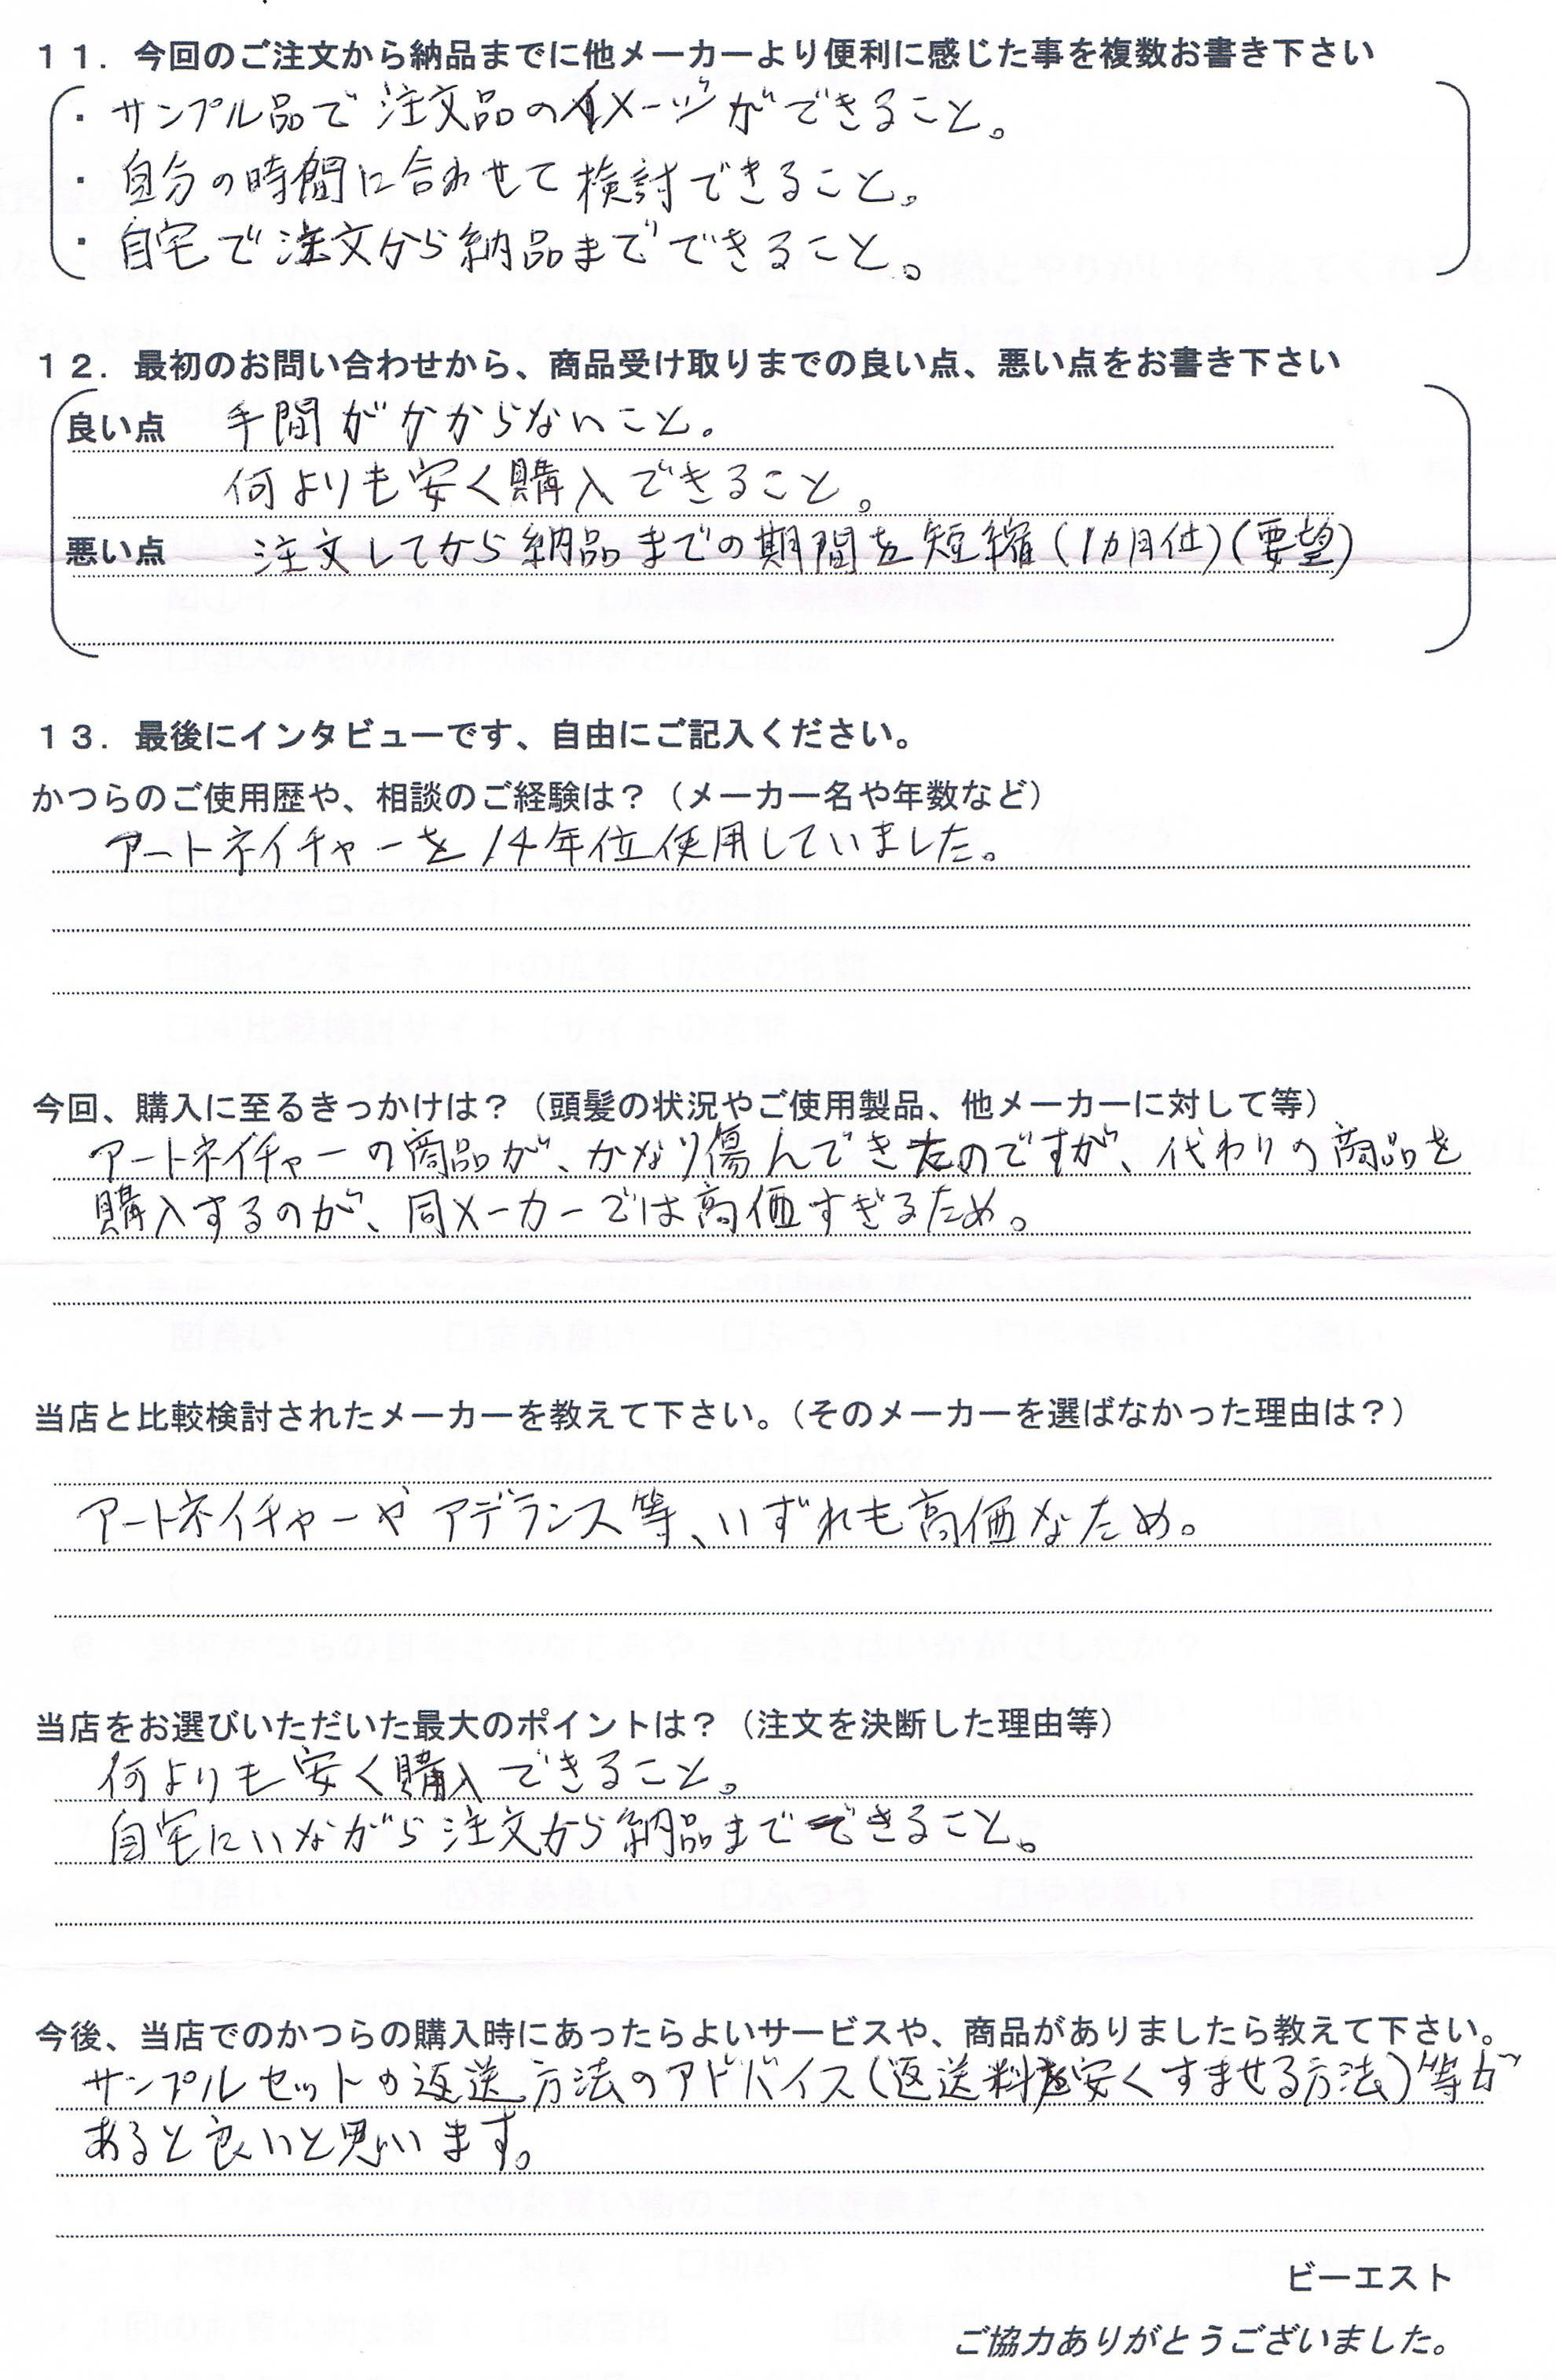 11．今回のご注文から納品までに他メーカーより便利に感じた事を複数お書き下さい
・サンプル品で注文品のイメージができること。
・自分の時間に合わせて検討できること。
・自宅で注文から納品までできること。
12．最初のお問い合わせから、商品受け取りまでの良い点、悪い点をお書き下さい
良い点 手間がかからないこと。
何よりも安く購入できること。
悪い点 注文してから納品までの期間を短縮(1カ月位)(要望)
13．最後にインタビューです、自由にご記入ください。
かつらのご使用歴や、相談のご経験は？（メーカー名や年数など）
アートネイチャーを14年位使用していました。
今回、購入に至るきっかけは？（頭髪の状況やご使用製品、他メーカーに対して等）
アートネイチャーの商品が、かなり傷んできたのですが、代わりの商品を
購入するのが、同メーカーでは高価すぎるため。
当店と比較検討されたメーカーを教えて下さい。（そのメーカーを選ばなかった理由は？）
アートネイチャーやアデランス等、いずれも高価なため。
当店をお選びいただいた最大のポイントは？（注文を決断した理由等）
何よりも安く購入できること。
自宅にいながら注文から納品までできること。
今後、当店でのかつらの購入時にあったらよいサービスや、商品がありましたら教えて下さい。
サンプルセットの返送方法のアドバイス(返送料を安くすませる方法)等が
あると良いと思います。
ビーエスト
ご協力ありがとうございました。